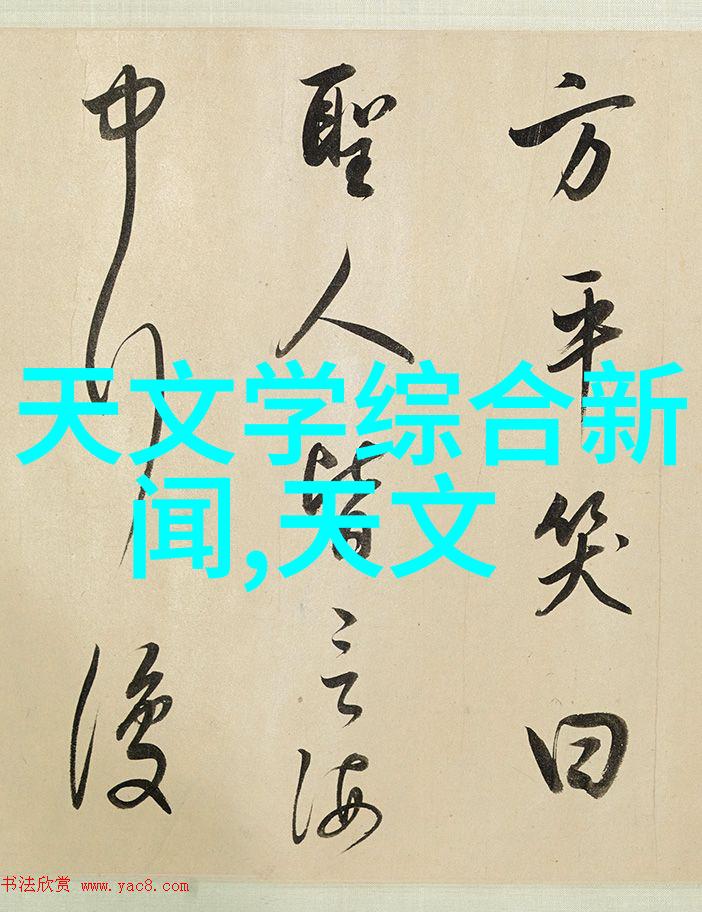 方平笑曰
聖人皆言海
中行復
天文学综合新
闻,天文
书法欣赏 www.yac8.com